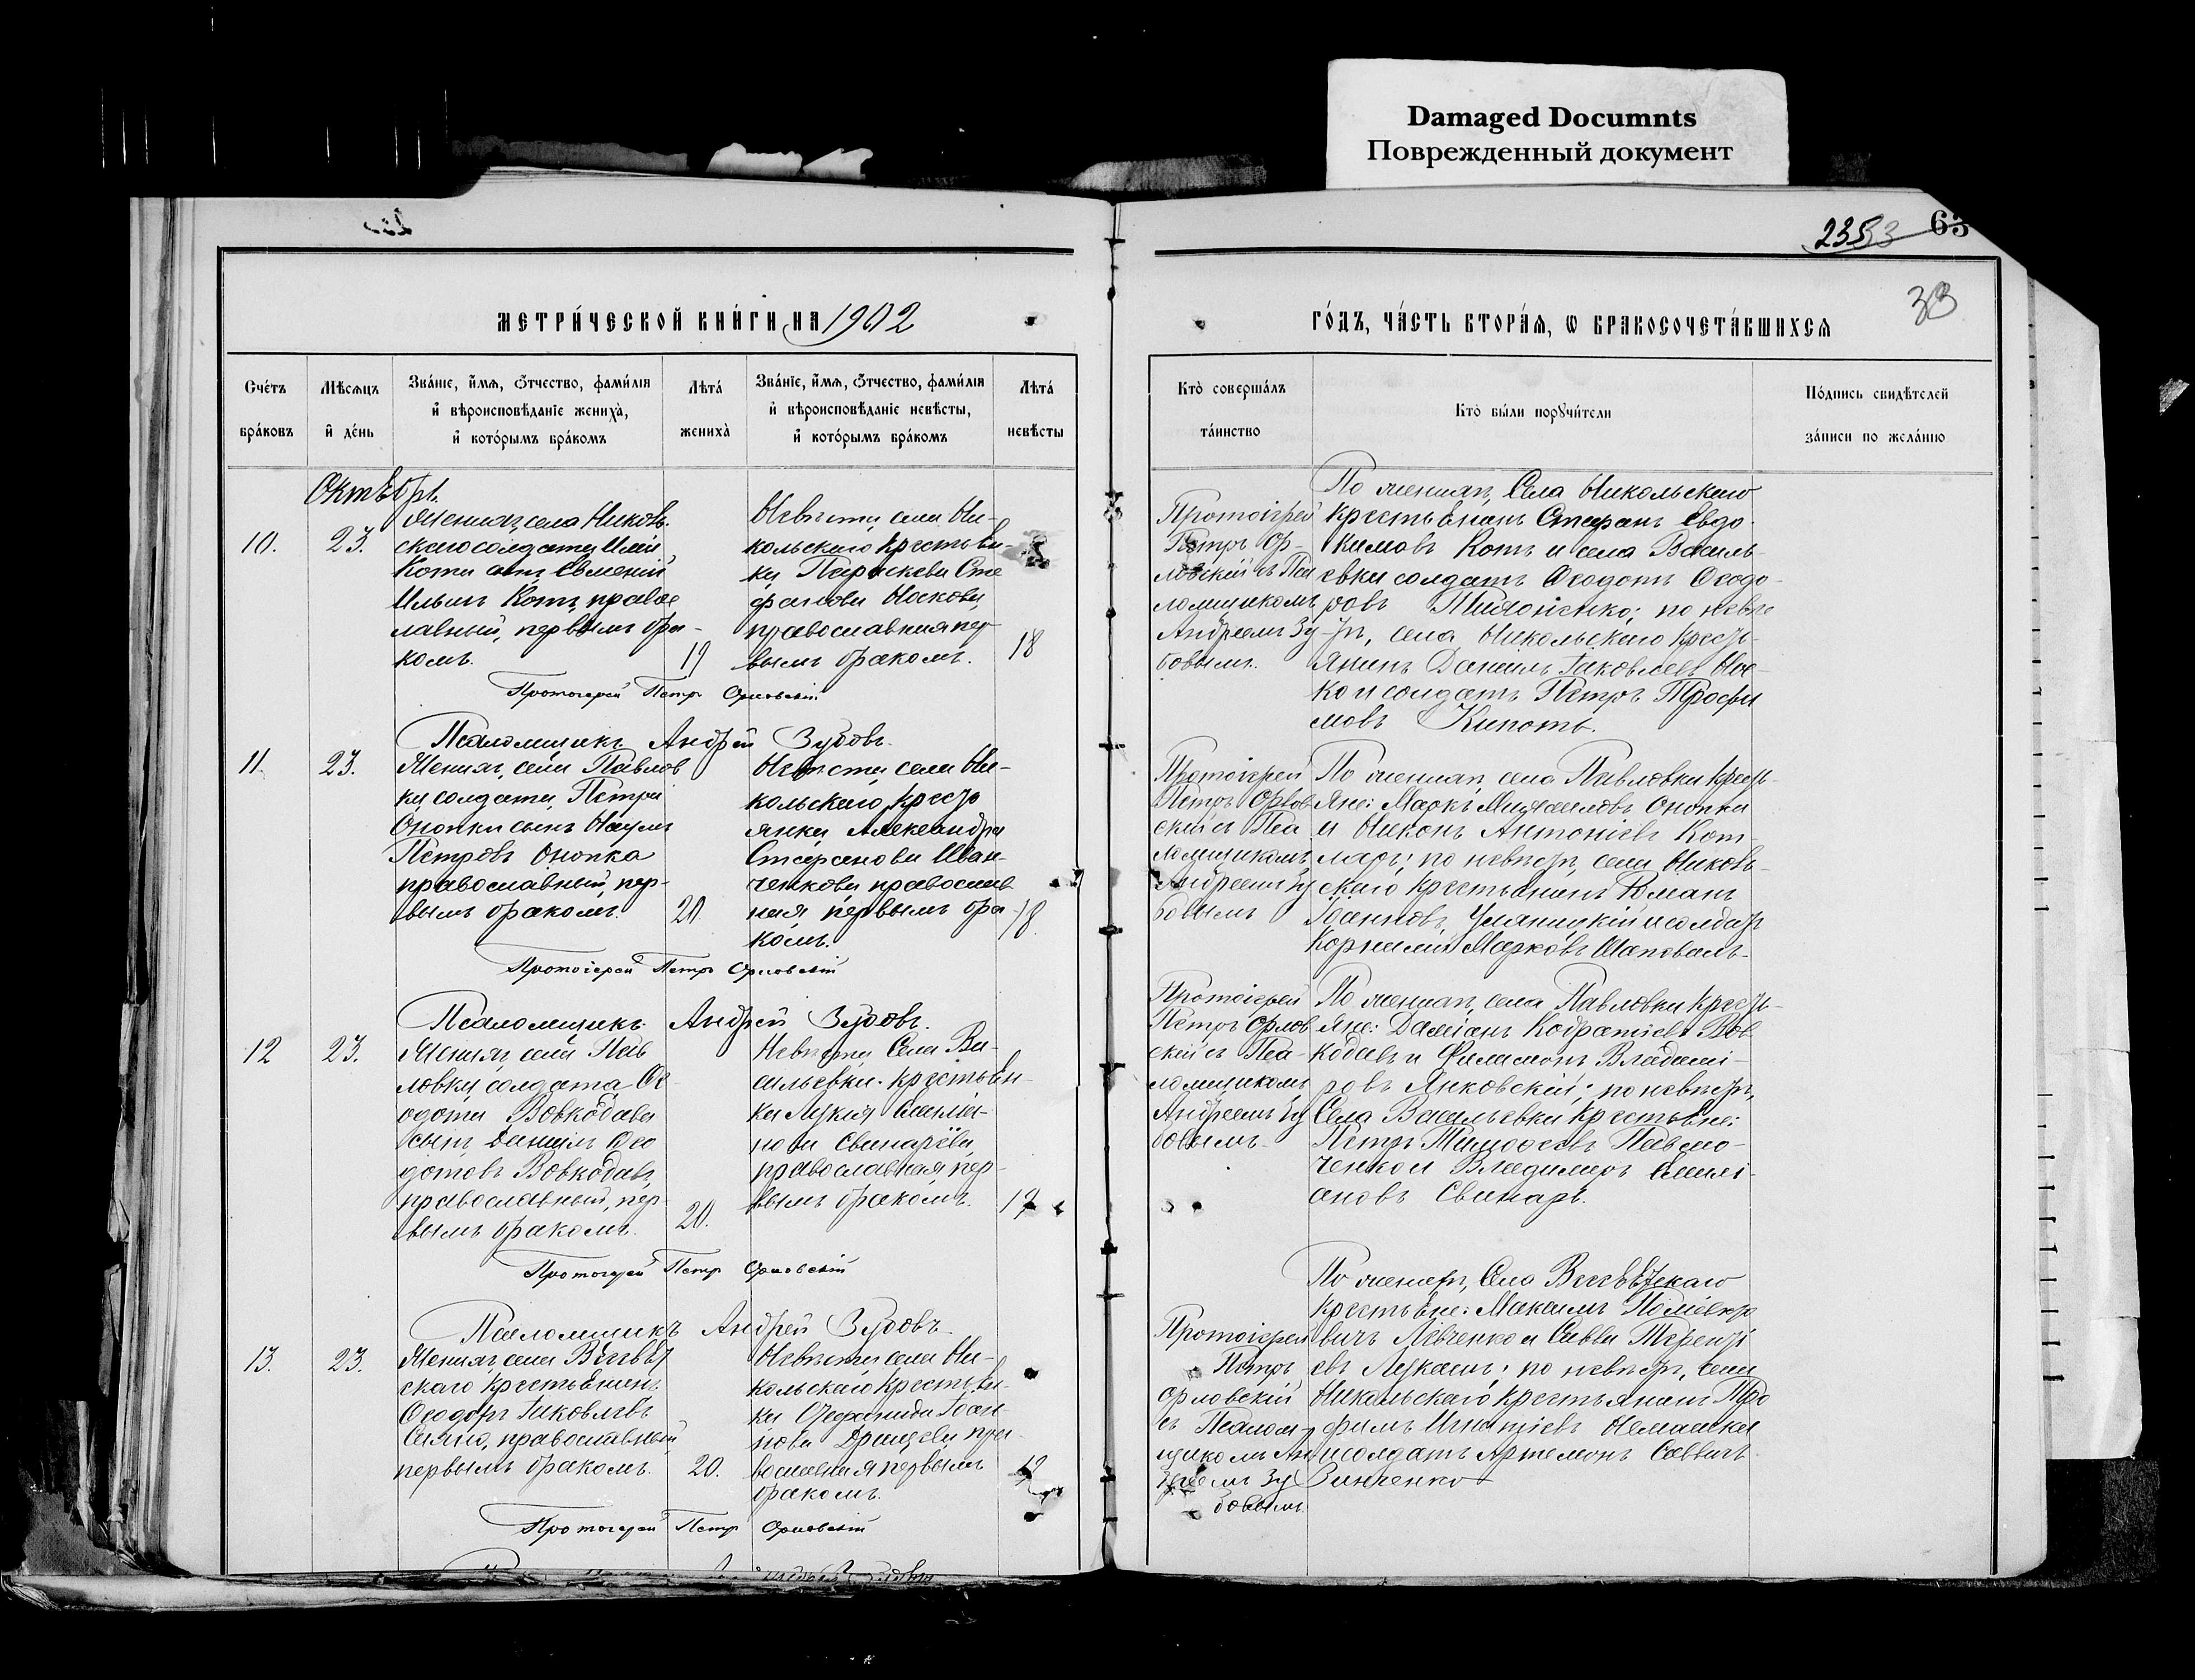 Damaged Documnts
Поврежденный документ
2353
63
33
МЕТРИЧЕСКОЙ КНИГИ НА 1902
ГОДЪ, ЧАСТЬ ВТОРАЯ, Ѡ БРАКОСОЧЕТАВШИХСЯ
Счетъ браковъ
Мѣсяцъ и день
Званіе, имя, ѻтчество, фамилія
и вѣроисповѣданіе жениха,
и которымъ бракомъ
Лѣта жениха
Званіе, имя, ѻтчество, фамилія
и вѣроисповѣданіе невѣсты,
и которымъ бракомъ
Лѣта невѣсты
Кто совершалъ таинство
Кто были поручители
Подпись свидѣтелей
записи по желанію
Октября.
10.
23.
Женихъ, села Николь-
скаго солдата Иліи
Кота сынъ Евменій
Ильинъ Котъ, правос
лавный, первымъ бра-
комъ.
19
Невѣста, села Ни-
кольскаго крестьян-
ка Параскева Сте
фанова Носкова,
православная пер
вымъ бракомъ.
18
Протоіерей
Петръ Ор-
ловскій съ Пса
ломщикомъ
Андреемъ Зу-
бовымъ.
По женихѣ, Села Никольскаго
крестьянинъ Стефанъ Евдо-
кимовъ Котъ и села Василь-
евки солдатъ Ѳеодотъ Ѳеодо-
ровъ по невѣс
тѣ, села Никольскаго кресть-
янинъ Даніилъ Іаковлевъ Нос-
ко и солдатъ Петръ Трофи
мовъ Кипоть.
Протоіерей Петръ Орловскій
Псаломщикъ Андрей Зубовъ.
11.
23.
Женихъ, села Павлов
ки, солдата, Петра
Онопки сынъ Наумъ
Петровъ Онопка
православный, пер-
вымъ бракомъ.
20.
Невѣста села Ни-
кольскаго кресть
янка Александра
Стефанова Иван-
ченкова православ
ная первымъ бра-
комъ.
18.
Протоіерей
Петръ Орлов
скій съ Пса
ломщикомъ
Андреемъ Зу
бовымъ
По женихѣ, села Павловки кресть-
яне: Маркъ Михаиловъ Онопка
и Никонъ Антоніевъ Кот-
ляръ; по невѣстѣ, села Николь-
скаго крестьянинъ Романъ
Іоанновъ Уманицкій и солдатъ
Корнилій Марковъ Шаповалъ.
Протоіерей Петръ Орловскій
Псаломщикъ Андрей Зубовъ.
12
23.
Женихъ, села Пав
ловки, солдата Ѳе-
одота Вовкодава
сынъ Даніилъ Ѳео
дотовъ Вовкодавъ,
православный, пер-
вымъ бракомъ.
20.
Невѣста Села Ва-
сильевки крестьян-
ка Лукія Емилія-
нова Свинарёва,
православная, пер-
вымъ бракомъ.
Протоіерей
Петръ Орлов
скій съ Пса-
ломщикомъ
Андреемъ Зу
бовымъ.
По женихѣ, села Павловки кресть-
яне: Даміанъ Кодратіевъ Вов
кодавъ и Филимонъ Владимі-
ровъ Янковскій; по невѣстѣ,
Села Васильевки Крестьяне:
Петръ Тимоѳеевъ Павло-
ченко и Владимиръ Емилі-
ановъ Свинарь.
Протоіерей Петръ Орловскій
Псаломщикъ Андрей Зубовъ.
13.
23.
скаго крестьянинъ
Ѳеодоръ Іаковлевъ
православный
первымъ бракомъ.
20.
Невѣста села Ни-
кольскаго крестьян-
ка Іоан-
нова пра-
вославная первымъ
бракомъ.
Протоіерей
Петръ
Орловскій
съ Псалом
щикомъ Ан
дреемъ Зу
бовымъ.
крестьяне: Максимъ
вичъ Левченко и Савва Теренті
евъ Лукашъ; по невѣстѣ, села
Никольскаго крестьянинъ Тро
фимъ Игнатіевъ Немашка
и солдатъ Артемонъ Саввичъ
Зинченко
Протоіерей Петръ Орловскій